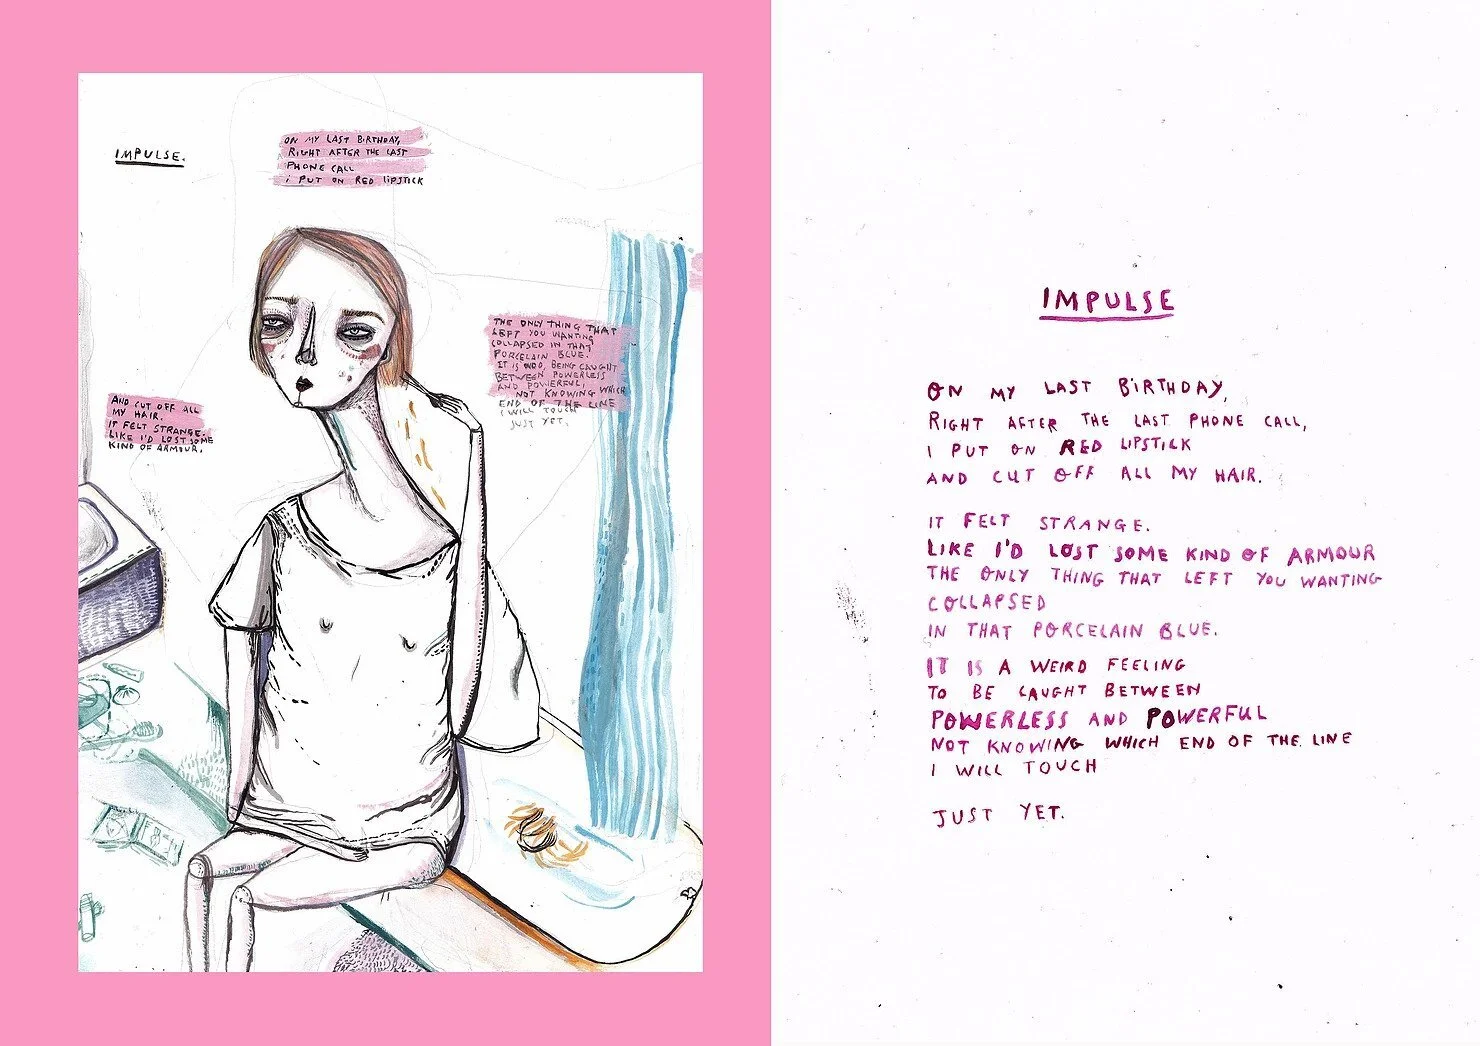 IMPULSE.
ON MY LAST BIRTHDAY,
RIGHT AFTER THE LAST
PHONE CALL
I PUT ON RED LIPSTICK
AND CUT OFF ALL
MY HAIR.
IT FELT STRANGE.
LIKE I'D LOST SOME
KIND OF ARMOUR.
THE ONLY THING THAT
LEFT YOU WANTING
COLLAPSED IN THAT
PORCELAIN BLUE.
IT IS ODD, BEING CAUGHT
BETWEEN POWERLESS
AND POWERFUL,
NOT KNOWING WHICH
END OF THE LINE
I WILL TOUCH
JUST YET.
IMPULSE
ON MY LAST BIRTHDAY,
RIGHT AFTER THE LAST PHONE CALL,
I PUT ON RED LIPSTICK
AND CUT OFF ALL MY HAIR.
IT FELT STRANGE.
LIKE I'D LOST SOME KIND OF ARMOUR
THE ONLY THING THAT LEFT YOU WANTING
COLLAPSED
IN THAT PORCELAIN BLUE.
IT IS A WEIRD FEELING
TO BE CAUGHT BETWEEN
POWERLESS AND POWERFUL
NOT KNOWING WHICH END OF THE LINE
I WILL TOUCH
JUST YET.